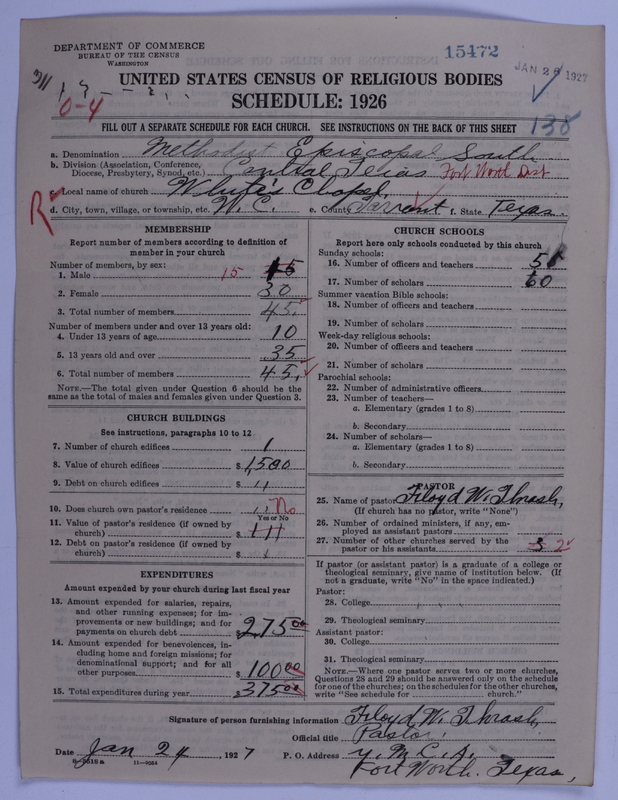 DEPARTMENT OF COMMERCE
BUREAU OF THE CENSUS
WASHINGTON
15472
JAN 26 1927
0-4
UNITED STATES CENSUS OF RELIGIOUS BODIES
SCHEDULE: 1926
FILL OUT A SEPARATE SCHEDULE FOR EACH CHURCH. SEE INSTRUCTIONS ON THE BACK OF THIS SHEET
138
a. Denomination Methodist Episcopal South
b. Division (Association, Conference, Diocese, Presbytery, Synod, etc.) Central Texas Fort Worth Dist
c. Local name of church White's Chapel
R d. City, town, village, or township, etc. W. C. e. County Tarrant f. State Texas.
MEMBERSHIP
Report number of members according to definition of
member in your church
Number of members, by sex:
1. Male 15 15
2. Female 30
3. Total number of members 45
Number of members under and over 13 years old:
4. Under 13 years of age 10
5. 13 years old and over 35
6. Total number of members 45
NOTE.—The total given under Question 6 should be the
same as the total of males and females given under Question 3.
CHURCH BUILDINGS
See instructions, paragraphs 10 to 12
7. Number of church edifices 1
8. Value of church edifices $ 1,500
9. Debt on church edifices $ ,,
10. Does church own pastor's residence No
Yes or No
11. Value of pastor's residence (if owned by
church) $
12. Debt on pastor's residence (if owned by
church) $
EXPENDITURES
Amount expended by your church during last fiscal year
13. Amount expended for salaries, repairs,
and other running expenses; for im-
provements or new buildings; and for
payments on church debt $ 275 00
14. Amount expended for benevolences, in-
cluding home and foreign missions; for
denominational support; and for all
other purposes $ 100 00
15. Total expenditures during year $ 375 00
CHURCH SCHOOLS
Report here only schools conducted by this church
Sunday schools:
16. Number of officers and teachers 5
17. Number of scholars 60
Summer vacation Bible schools:
18. Number of officers and teachers
19. Number of scholars
Week-day religious schools:
20. Number of officers and teachers
21. Number of scholars
Parochial schools:
22. Number of administrative officers
23. Number of teachers—
a. Elementary (grades 1 to 8)
b. Secondary
24. Number of scholars—
a. Elementary (grades 1 to 8)
b. Secondary
PASTOR
25. Name of pastor Floyd W. Thrash,
(If church has no pastor, write "None")
26. Number of ordained ministers, if any, em-
ployed as assistant pastors
27. Number of other churches served by the
pastor or his assistants 3 2
If pastor (or assistant pastor) is a graduate of a college or
theological seminary, give name of institution below. (If
not a graduate, write "No" in the space indicated.)
Pastor:
28. College
29. Theological seminary
Assistant pastor:
30. College
31. Theological seminary
NOTE.—Where one pastor serves two or more churches,
Questions 28 and 29 should be answered only on the schedule
for one of the churches; on the schedules for the other churches,
write "See schedule for church."
Signature of person furnishing information Floyd W. Thrash,
Official title Pastor.
Date Jan 24, 1927 P. O. Address Y. M. C. A.
Fort Worth, Texas,
8-5516 a 11-9084